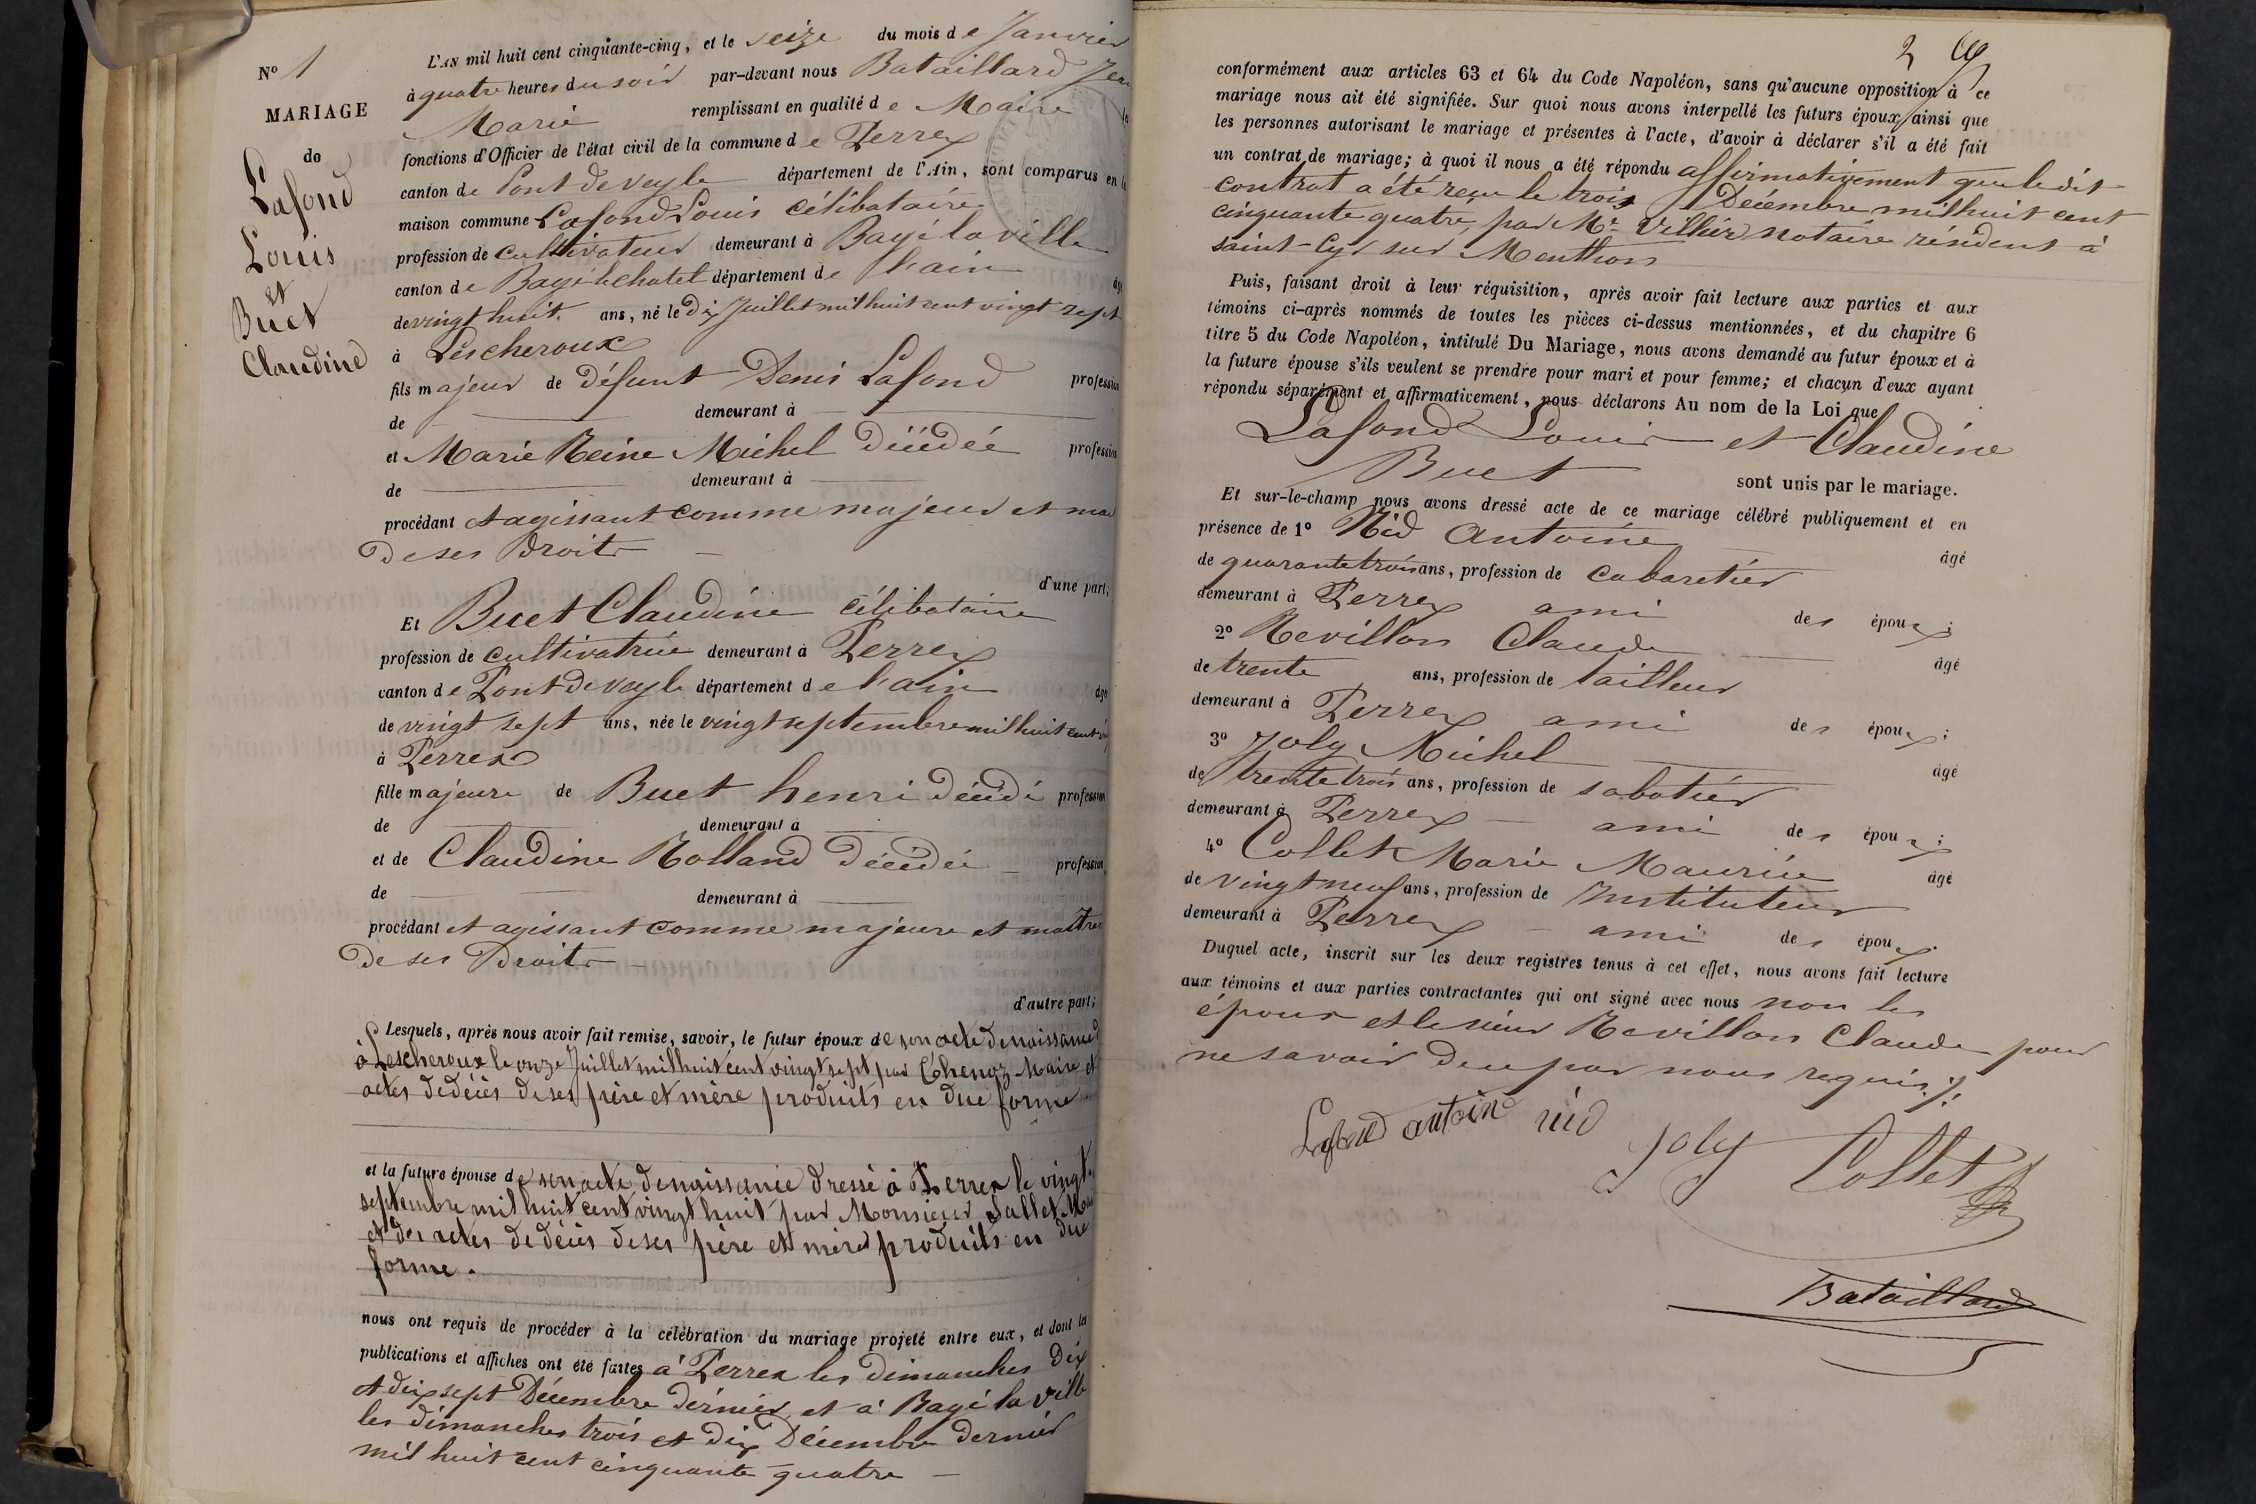 N° 1
MARIAGE
de
Lafond
Louis
et
Buet
Claudine
L'AN mil huit cent cinquante-cinq, et le seize du mois de Janvier
à quatre heures du soir par-devant nous Bataillard Jean
Marie remplissant en qualité de Maire
fonctions d'Officier de l'état civil de la commune de Perrex
canton de Pont de veyle département de l'Ain, sont comparus en la
maison commune Lafond Louis célibataire
profession de cultivateur demeurant à Bagé la ville
canton de Bagé le chatel département de l'ain âgé
de vingt huit ans, né le dix Juillet mil huit cent vingt sept
à Lescheroux
fils majeur de défunt Denis Lafond profession
de demeurant à
et Marie Reine Michel décédée profession
de demeurant à
procédant et agissant comme majeur et
de ses droits
d'une part;
Et Buet Claudine célibataire
profession de cultivatrice demeurant à Perrex
canton de Pont de veyle département de l'ain âgé
de vingt sept ans, née le vingt septembre mil huit cent
à Perrex
fille majeure de Buet henri décédé profession
de demeurant à
et de Claudine Rolland décédée profession
de demeurant à
procédant et agissant comme majeure et maîtresse
de ses droits
d'autre part;
Lesquels, après nous avoir fait remise, savoir, le futur époux de son acte de naissance
à Lescheroux le onze Juillet mil huit cent vingt sept par Chenoz Maire et
actes de décès de ses père et mère produits en due forme
et la future épouse de son acte de naissance dressé à Perrex le vingt
septembre mil huit cent vingt huit par Monsieur Sallet
et des actes de décès de ses père et mère produits en due
forme.
nous ont requis de procéder à la célébration du mariage projeté entre eux, et dont les
publications et affiches ont été faites à Perrex les dimanches dix
et dix sept Décembre dernier, et à Bagé la ville
les dimanches trois et dix Décembre dernier
mil huit cent cinquante quatre
2
conformément aux articles 63 et 64 du Code Napoléon, sans qu'aucune opposition à ce
mariage nous ait été signifiée. Sur quoi nous avons interpellé les futurs époux ainsi que
les personnes autorisant le mariage et présentes à l'acte, d'avoir à déclarer s'il a été fait
un contrat de mariage; à quoi il nous a été répondu affirmativement que le dit
contrat a été reçu le trois Décembre mil huit cent
cinquante quatre, par Me Villier notaire résident à
saint-Cyr sur Menthon
Puis, faisant droit à leur réquisition, après avoir fait lecture aux parties et aux
témoins ci-après nommés de toutes les pièces ci-dessus mentionnées, et du chapitre 6
titre 5 du Code Napoléon, intitulé Du Mariage, nous avons demandé au futur époux et à
la future épouse s'ils veulent se prendre pour mari et pour femme; et chacun d'eux ayant
répondu séparément et affirmativement, nous déclarons Au nom de la Loi que
Lafond Louis et Claudine
Buet sont unis par le mariage.
Et sur-le-champ nous avons dressé acte de ce mariage célébré publiquement et en
présence de 1° Nid Antoine âgé
de quarante trois ans, profession de cabaretier
demeurant à Perrex ami des époux;
2° Revillon Claude âgé
de trente ans, profession de tailleur
demeurant à Perrex ami des époux;
3° Joly Michel âgé
de trente trois ans, profession de sabotier
demeurant à Perrex ami des époux;
4° Collet Marie Maurice âgé
de vingt neuf ans, profession de Instituteur
demeurant à Perrex ami des époux.
Duquel acte, inscrit sur les deux registres tenus à cet effet, nous avons fait lecture
aux témoins et aux parties contractantes qui ont signé avec nous non les
époux et le sieur Revillon Claude pour
ne savoir de ce par nous requis
antoine nid
Joly
Collet
Bataillard